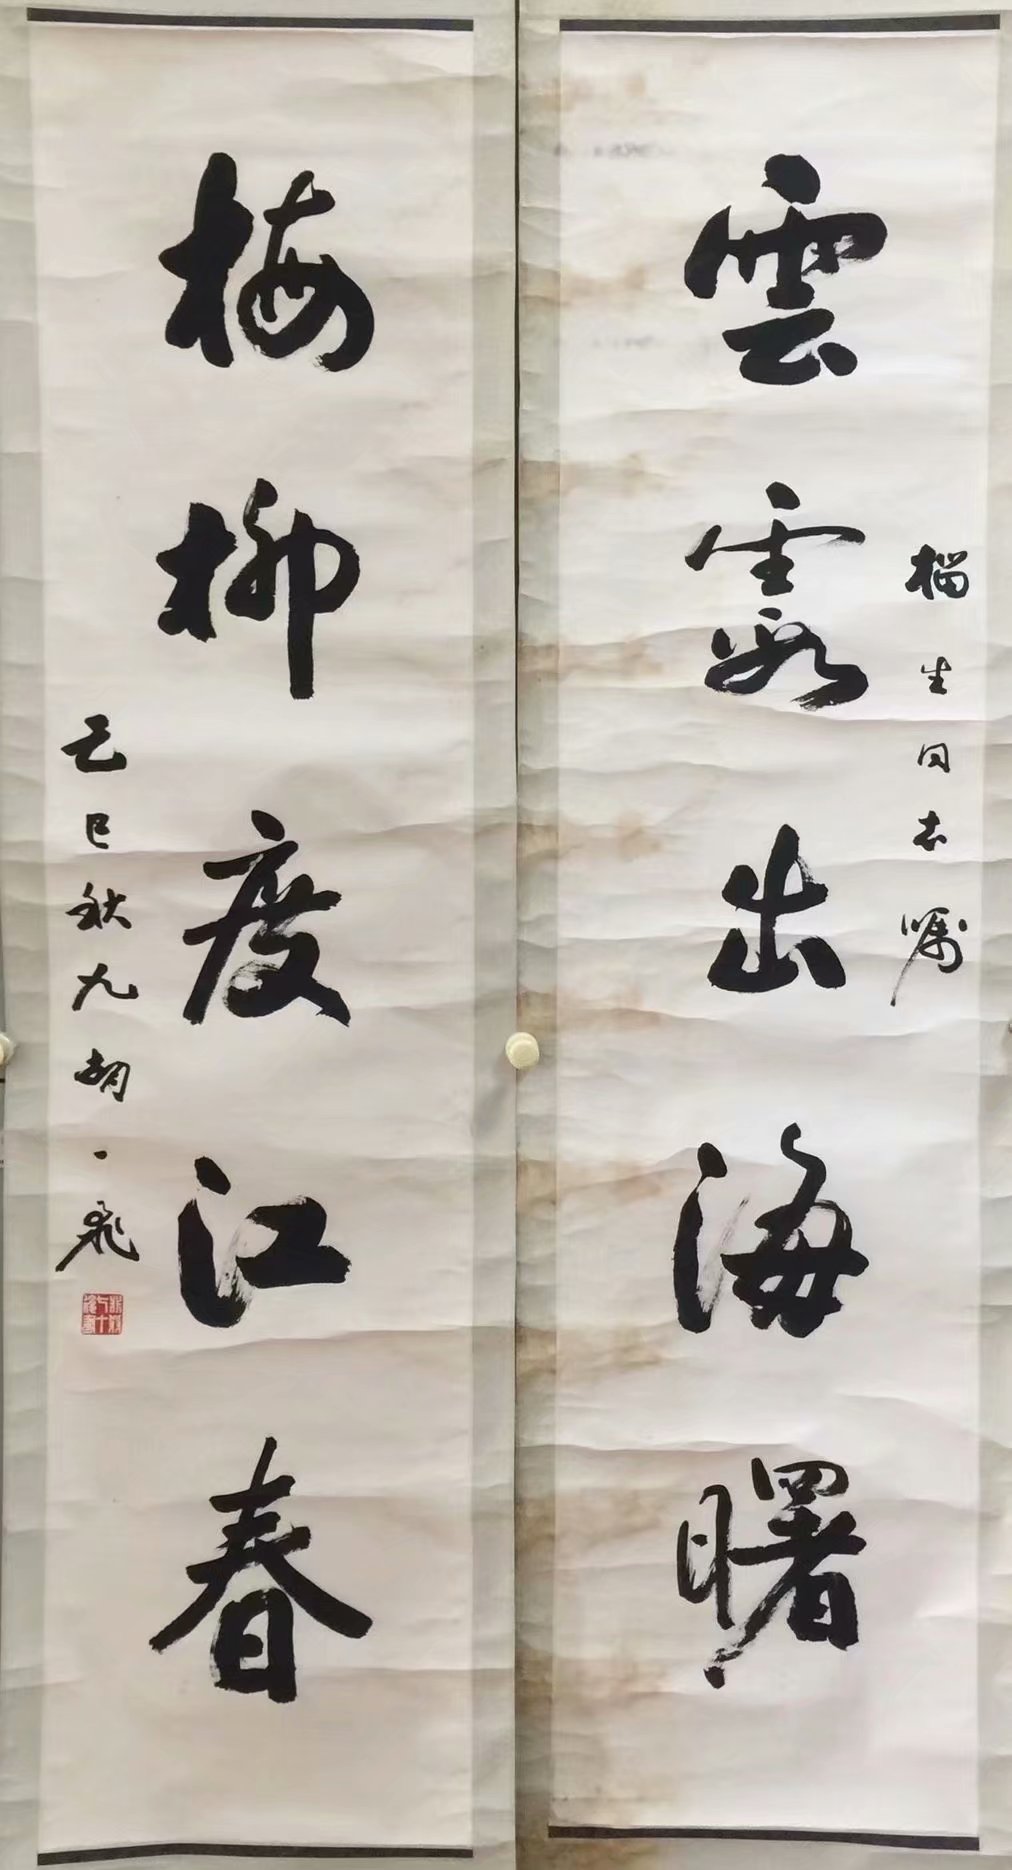 榴生同志嘱
雲霞出海曙
梅柳度江春
己巳秋九胡一飛